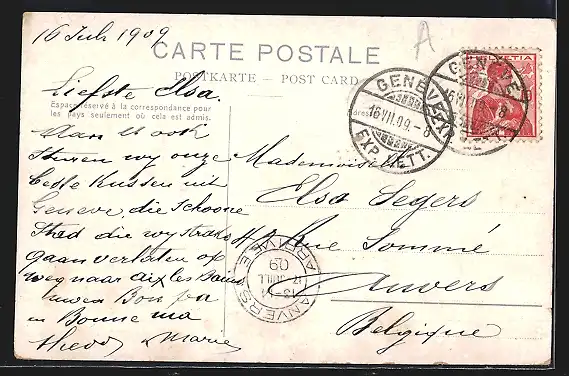 16 Juli 1909
A
CARTE POSTALE
POSTKARTE — POST CARD
Liefste Elsa.
Espace réservé à la correspondance pour
les pays seulement où cela est admis.
Adresse
HELVETIA
GENÈVE
16.VII.09.-8
EXP. LETT.
GENÈVE
EXP. LETT.
van ook
sturen wy onze
beste Kussen uit
Geneve, die Schoone
Stad die wy straks
gaan verlaten op
weg naar Aix les Bains
uwen Bon pa
en Bonne ma
Marie
Mademoiselle
Elsa Segers
Rue Sommé
Anvers
Belgique
ANVERS
ARRIVÉE
13-14
17 JUIL
09